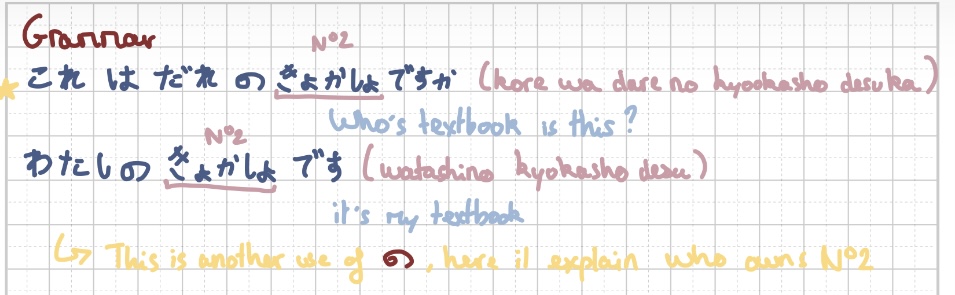 Grammar
N°2
これ は だれ の きょかしょ ですか (kore wa dare no kyokasho desuka)
Who's textbook is this?
N°2
わたし の きょかしょ です (watashino kyokasho desu)
it's my textbook
This is another use of の, here it explain who owns N°2